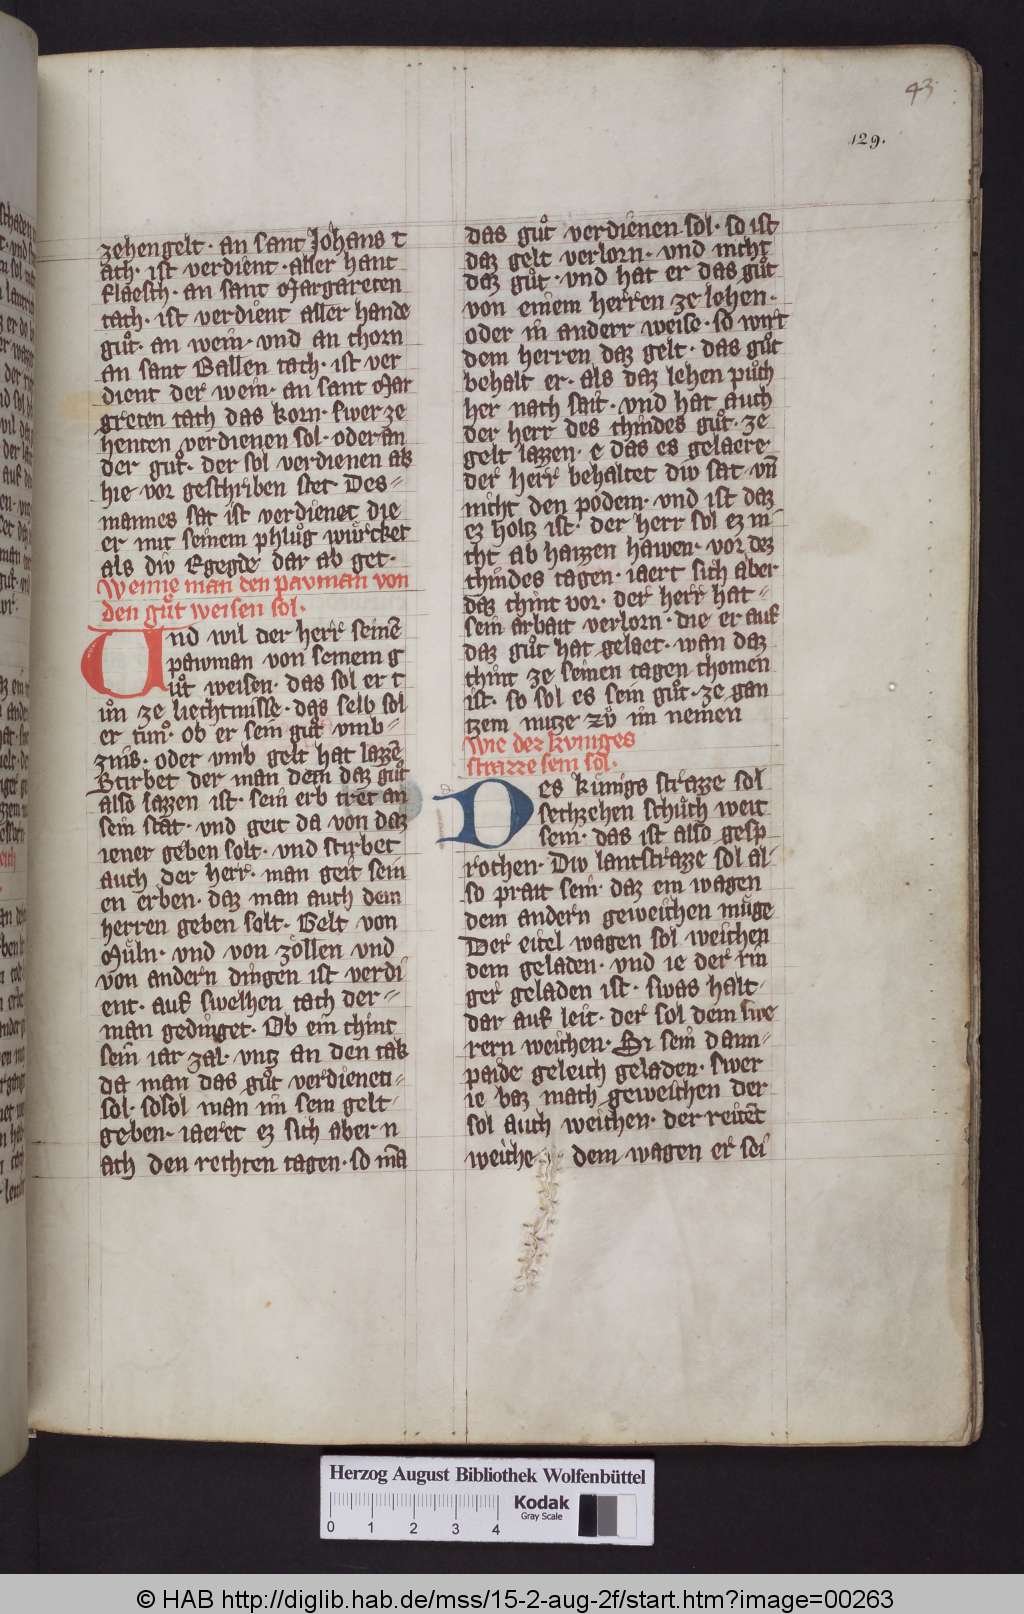 43
129.
zehengelt · an sant Johans t
ach · ist verdient · aller hant
flaesch · an sant Margareten
tach · ist verdient aller hande
guͦt · an wein · vnd an chorn
an sant Gallen tach · ist ver
dient der wein · an sant Mar
greten tach das korn · swer ze
henten verdienen sol · oder an
der guͦt · der sol verdienen als
hie vor geschriben stet Des-
mannes sat ist verdienet die
er mit seinem phluͦg wuͤrcket
als div Egegde dar ab get ·
Wenne man den pavman von
den guͦt weisen sol ·
Vnd wil der herr seinē
pawman von seinem g
uͦt weisen · das sol er t
uͦn ze liechtmisse · das selb sol
er tuͦn · ob er sein guͦt vmb-
zins · oder vmb gelt hat lazzē
Stirbet der man dem daz guͦt
also lazzen ist · sein erb tret an
sein stat · vnd geit da von daz
iener geben solt · vnd stirbet
auch der herr · man geit sein
en erben · daz man auch dem
herren geben solt · Gelt von
Muͤln · vnd von zoͤllen vnd
von andern dingen ist verdi
ent · auf swelhen tach der-
man gedinget · Ob ein chint
sein iar zal · vntz an den tak
da man das guͦt verdienen-
sol · so sol man im sein gelt-
geben · iaeret ez sich aber n
ach den rechten tagen · so mā
das guͦt verdienen sol · so ist
daz gelt verlorn · vnd nicht
daz guͦt · vnd hat er das guͦt
von einem herren ze lehen ·
oder in anderr weise · so wirt
dem herren daz gelt · das guͦt
behalt er · als daz lehen puͦch
her nach sait · vnd hat auch
der herr des chindes guͦt · ze
gelt lazzen · e das es gelaere ·
der herr behaltet div sat · vn̄
nicht den podem · vnd ist daz
ez holtz ist · der herr sol ez ni
cht ab haizzen hawen · vor dez
chindes tagen · iaert sich aber
daz chint vor · der herr hat-
sein arbait verlorn · die er auf
daz guͦt hat gelaet · wan daz
chint ze seinen tagen chomen
ist · so sol es sein guͦt · ze gan
tzem nutze zuͦ im nemen
Wie der kvniges
strazze sein sol ·
Des kuͤnigs strazze sol
sechzehen schuͦch weit
sein · das ist also gesp
rochen · Div lantstrazze sol al-
so prait sein · daz ein wagen
dem andern geweichen muͤge
Der eitel wagen sol weichen
dem geladen · vnd ie der rin
ger geladen ist · swas halt ·
dar auf leit · der sol dem swe
rern weichen · Si sein dann-
paide geleich geladen · swer
ie baz mach geweichen der
sol auch weichen · der reitēt
weiche dem wagen er sei
Herzog August Bibliothek Wolfenbüttel
Kodak
Gray Scale
0 1 2 3 4
© HAB http://diglib.hab.de/mss/15-2-aug-2f/start.htm?image=00263